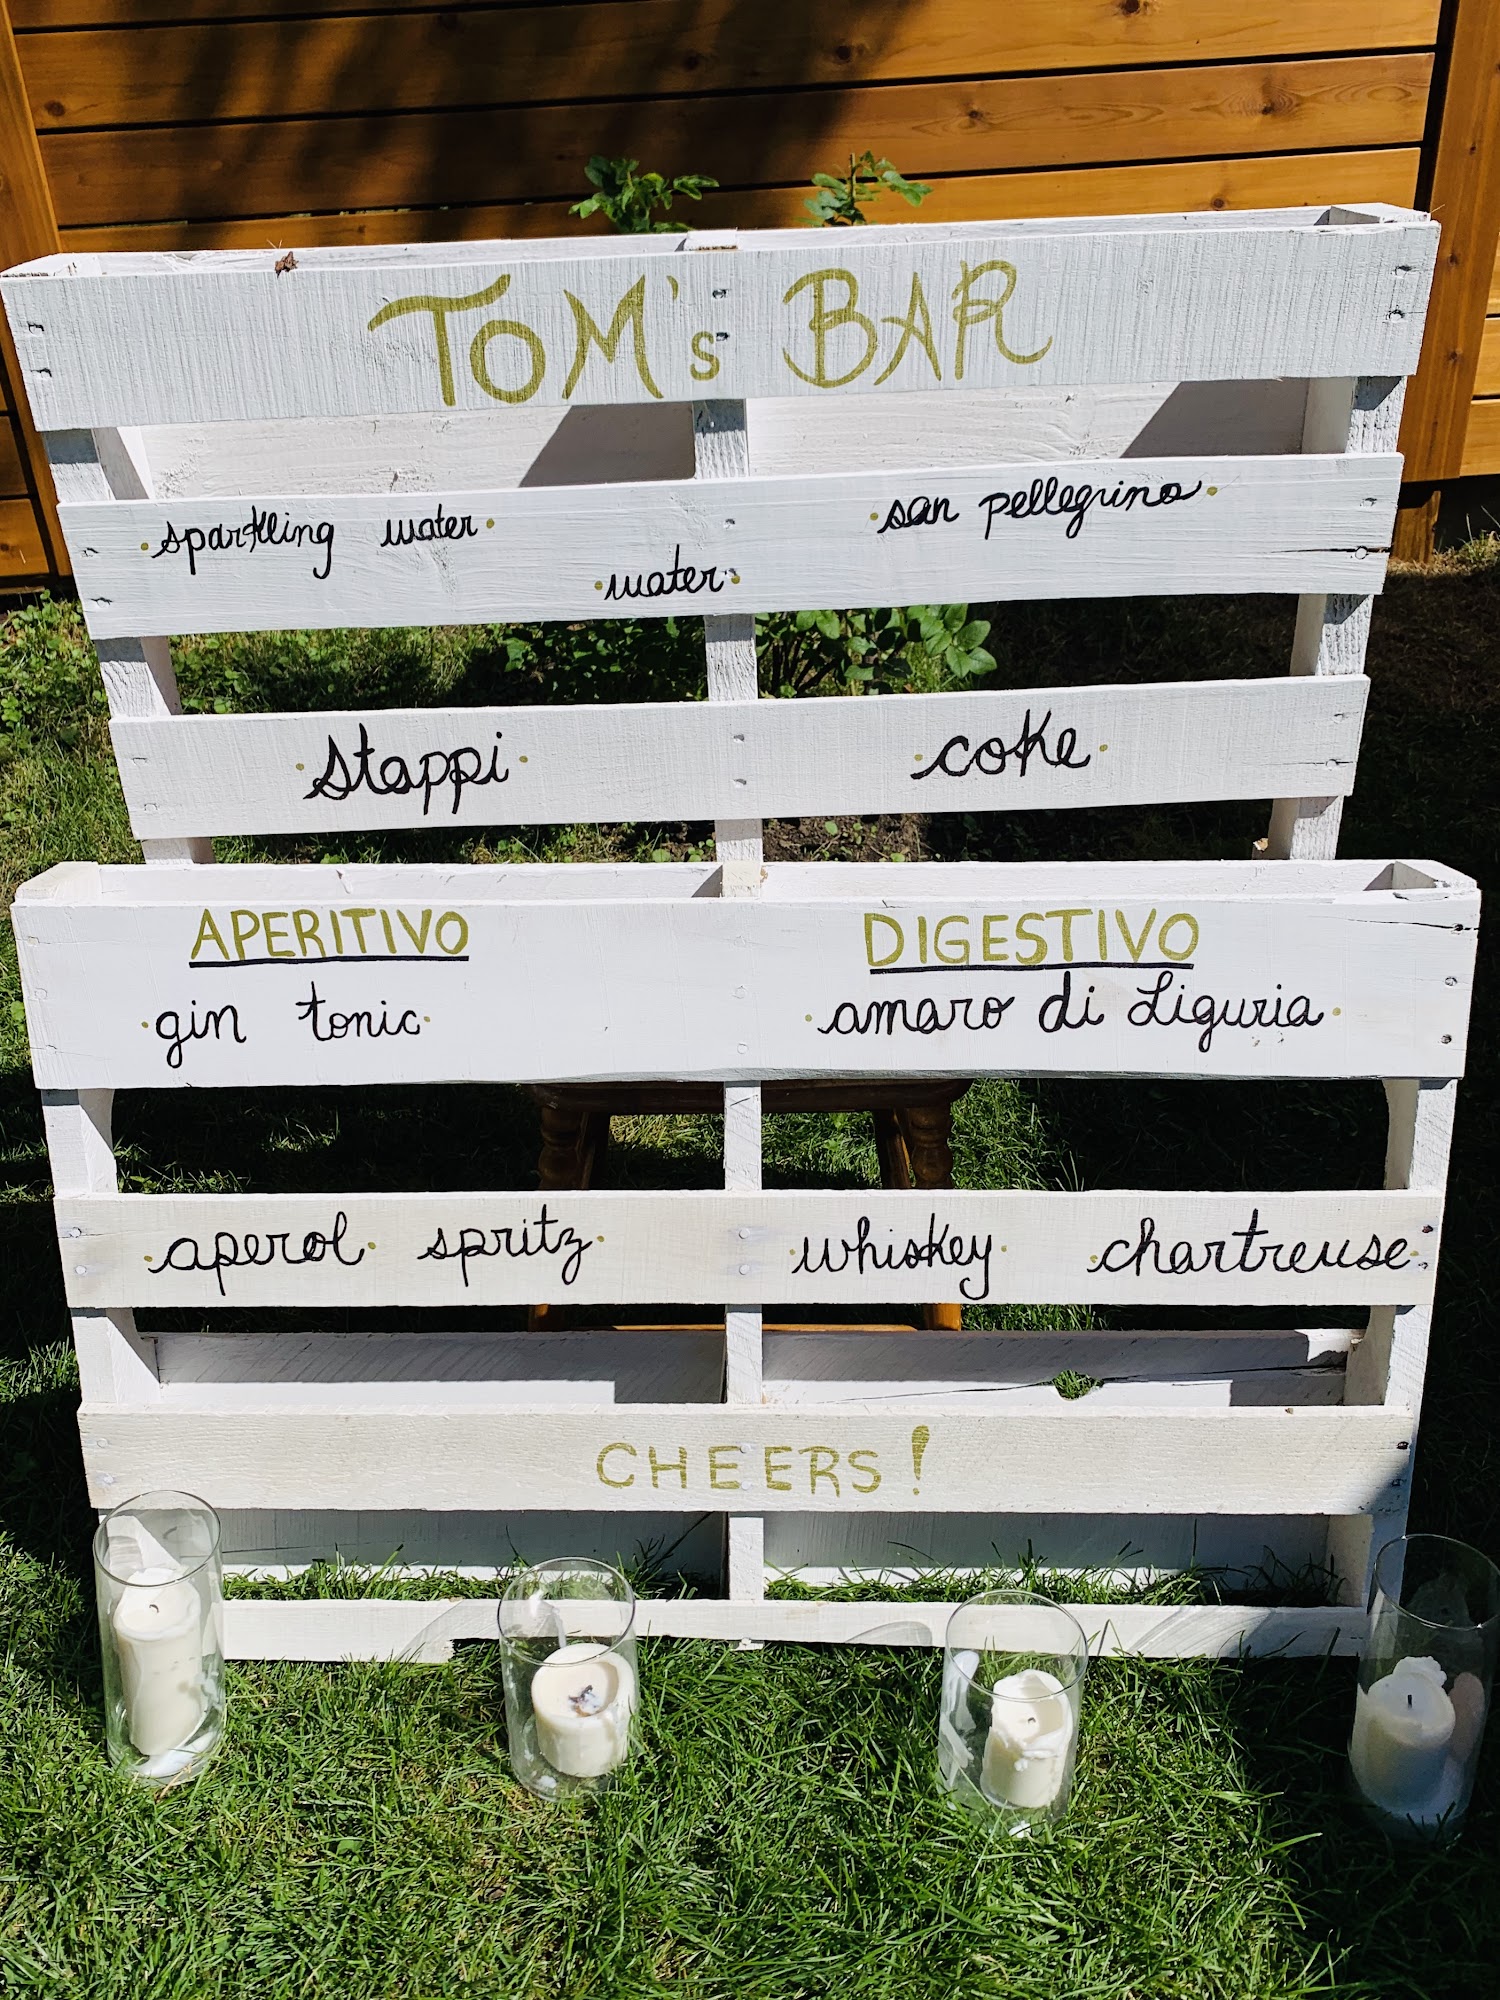 TOM's BAR
sparkling water san pellegrino
water
stappi coke
APERITIVO DIGESTIVO
gin tonic amaro di Liguria
aperol spritz whiskey chartreuse
CHEERS!